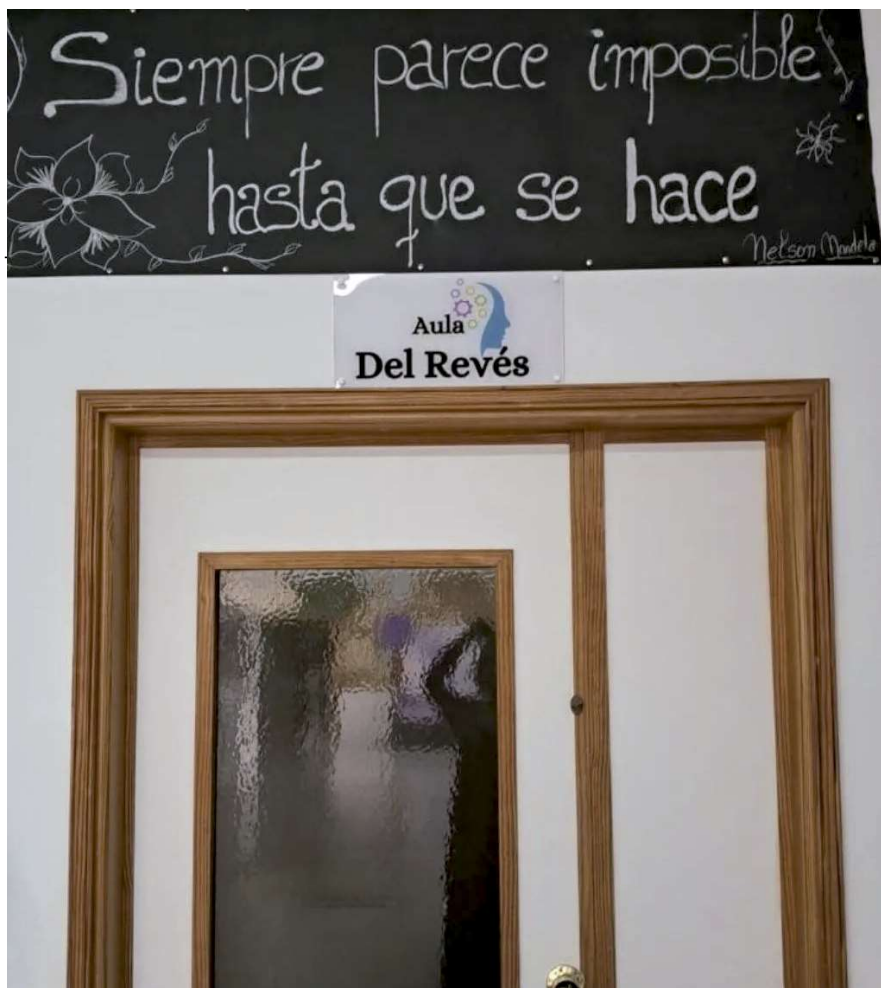 Siempre parece imposible
hasta que se hace
Nelson Mandela
Aula
Del Revés